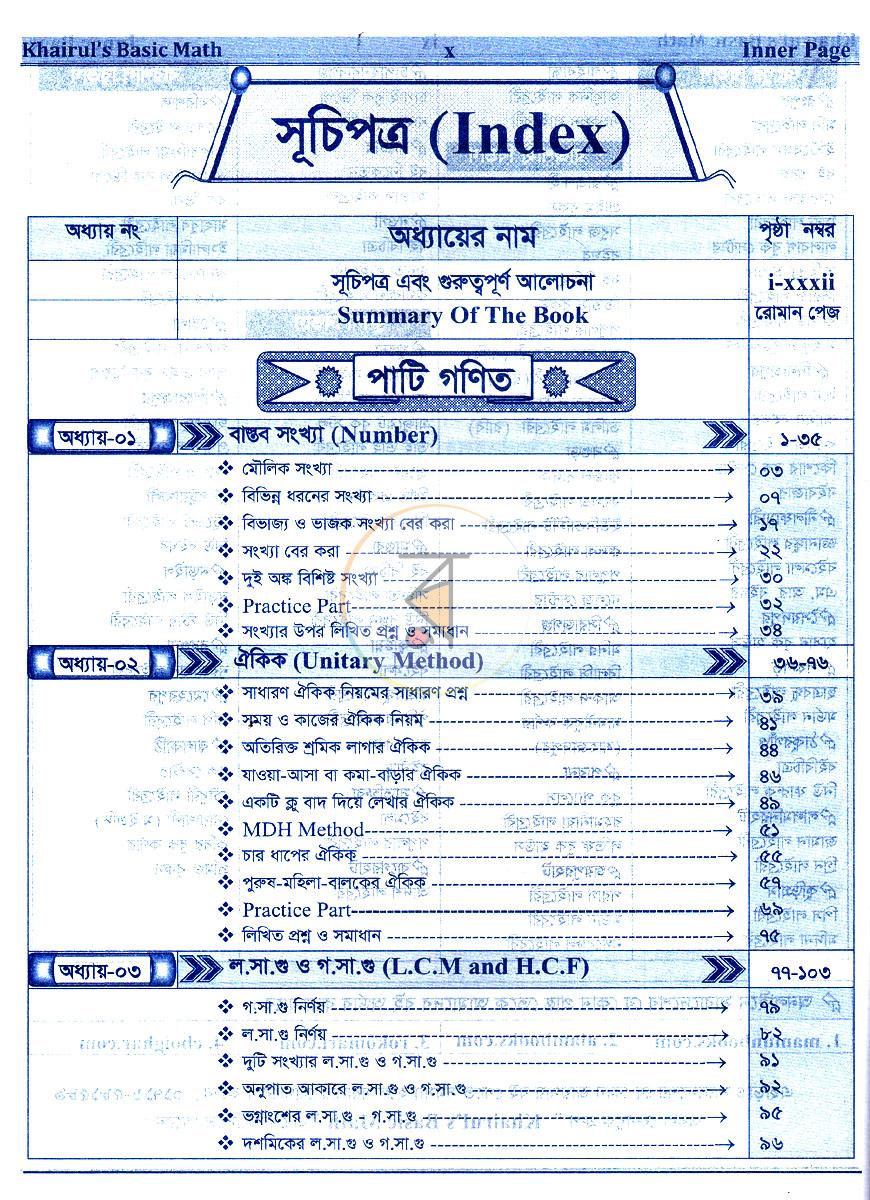 Khairul's Basic Math x Inner Page
সূচিপত্র (Index)
অধ্যায় নং অধ্যায়ের নাম পৃষ্ঠা নম্বর
সূচিপত্র এবং গুরুত্বপূর্ণ আলোচনা i-xxxii
Summary Of The Book রোমান পেজ
পাটি গণিত
অধ্যায়-০১ বাস্তব সংখ্যা (Number) ১-৩৫
❖ মৌলিক সংখ্যা ০৩
❖ বিভিন্ন ধরনের সংখ্যা ০৭
❖ বিভাজ্য ও ভাজক সংখ্যা বের করা ১৭
❖ সংখ্যা বের করা ২২
❖ দুই অঙ্ক বিশিষ্ট সংখ্যা ৩০
❖ Practice Part ৩২
❖ সংখ্যার উপর লিখিত প্রশ্ন ও সমাধান ৩৪
অধ্যায়-০২ ঐকিক (Unitary Method) ৩৬-৭৬
❖ সাধারণ ঐকিক নিয়মের সাধারণ প্রশ্ন ৩৯
❖ সময় ও কাজের ঐকিক নিয়ম ৪১
❖ অতিরিক্ত শ্রমিক লাগার ঐকিক ৪৪
❖ যাওয়া-আসা বা কমা-বাড়ার ঐকিক ৪৬
❖ একটি ক্লু বাদ দিয়ে লেখার ঐকিক ৪৯
❖ MDH Method ৫১
❖ চার ধাপের ঐকিক ৫৫
❖ পুরুষ-মহিলা-বালকের ঐকিক ৫৭
❖ Practice Part ৬৯
❖ লিখিত প্রশ্ন ও সমাধান ৭৫
অধ্যায়-০৩ ল.সা.গু ও গ.সা.গু (L.C.M and H.C.F) ৭৭-১০৩
❖ গ.সা.গু নির্ণয় ৭৯
❖ ল.সা.গু নির্ণয় ৮২
❖ দুটি সংখ্যার ল.সা.গু ও গ.সা.গু ৯১
❖ অনুপাত আকারে ল.সা.গু ও গ.সা.গু ৯২
❖ ভগ্নাংশের ল.সা.গু - গ.সা.গু ৯৫
❖ দশমিকের ল.সা.গু ও গ.সা.গু ৯৬